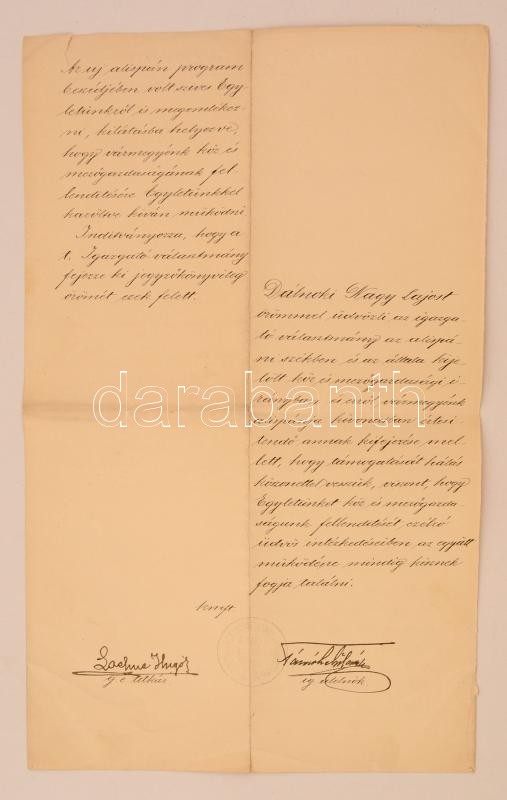 Az uj alispán program
beszédjében volt szives Egy-
letünkről is megemlékez-
ni, kilátásba helyezve,
hogy vármegyénk köz és
mezőgazdaságának fel
lenditésére Egyletünkkel
karöltve kiván működni.
Inditványozza, hogy a
t. Igazgató választmány
fejezze ki jegyzőkönyvileg
örömét ezek felett.
Dálnoki Nagy Lajost
örömmel üdvözli az igazga-
tó választmány az alispá-
ni székben és az általa kije-
lölt köz és mezőgazdasági i-
rányban és erről vármegyénk
alispánja kivonatban értesi-
tendő annak kifejezése mel-
lett, hogy támogatását hálás
köszönettel veszük, viszont, hogy
Egyletünket köz és mezőgazda-
ságunk fellenditését czélzó
üdvös intézkedéseiben az együtt
működésre mindig késznek
fogja találni.
kmft
Hugó
g. e. titkár
ig. alelnök
darabanth